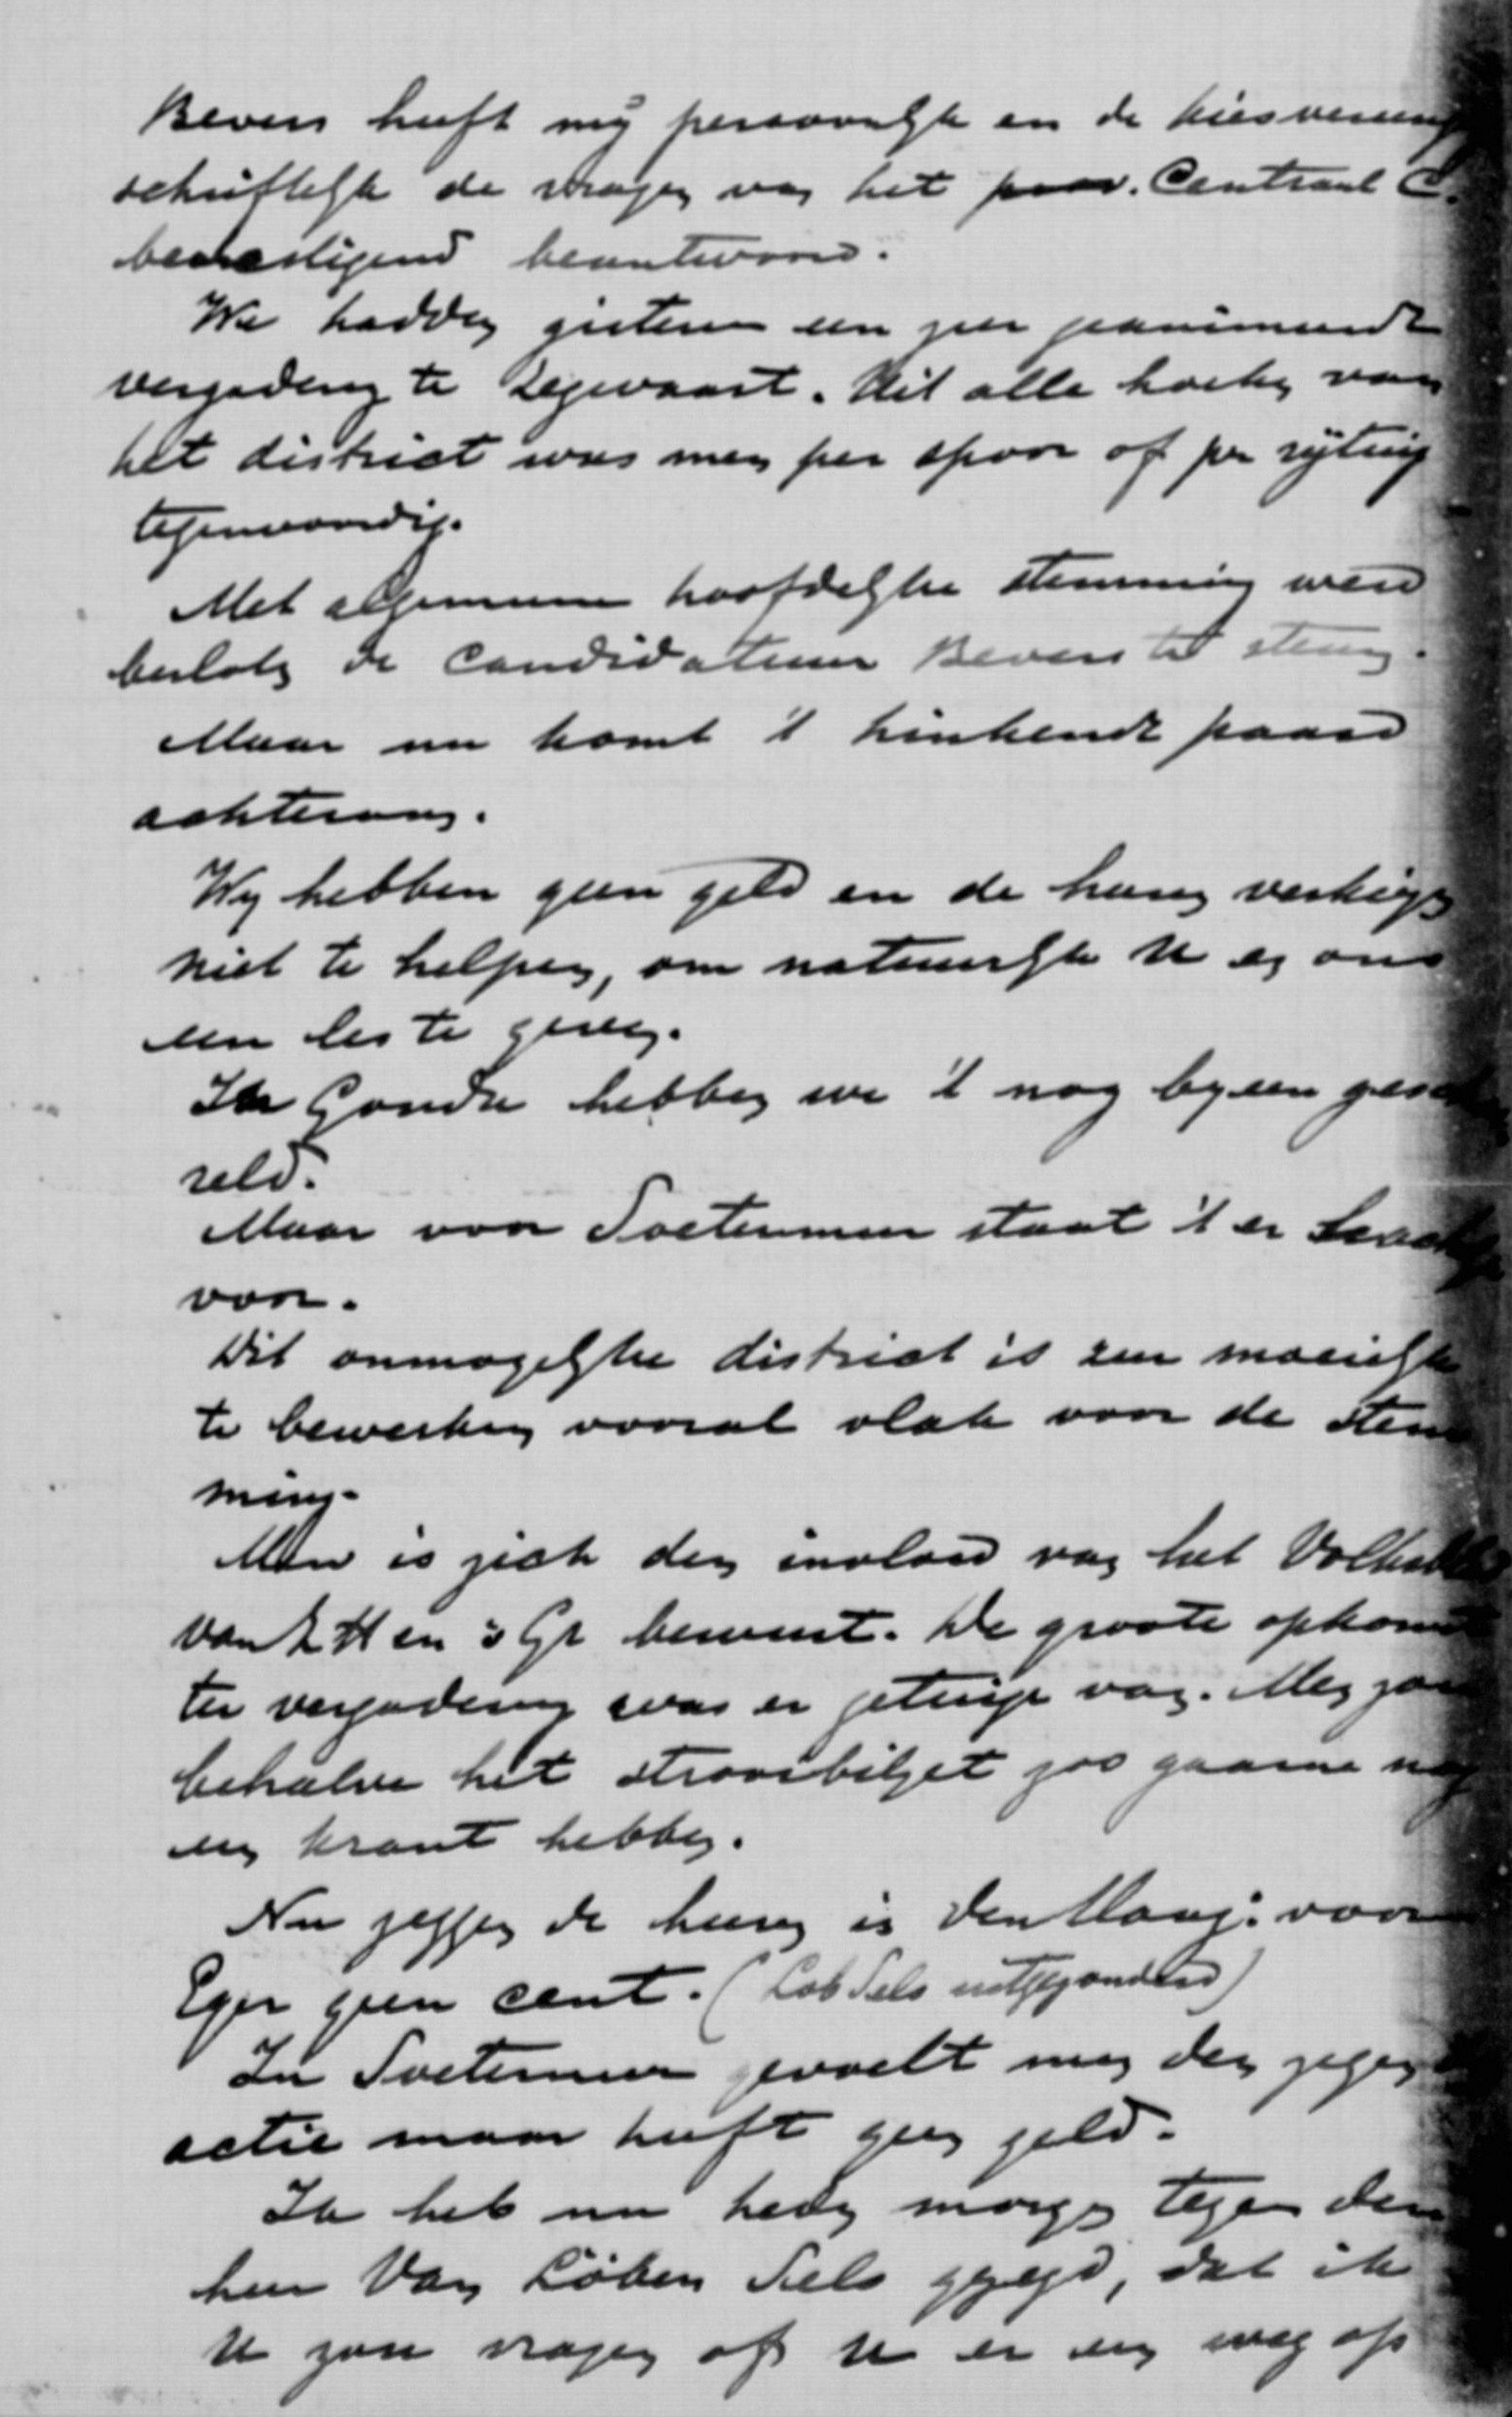 Bevers heeft mij persoonlijk en de kiesvereenig
schriftelijk de vragen van het prov. Centraal C.
bevestigend beantwoord.
We hadden gisteren een zeer geanimeerde
vergadering te Zegwaart. Uit alle hoeken van
het district was men per spoor of per rijtuig
tegenwoordig.
Met algemeene hoofdelijke stemming werd
besloten de candidatuur Bevers te steunen.
Maar nu komt 't hinkende paard
achteraan.
Wij hebben geen geld en de heeren verkiezen
niet te helpen, om natuurlijk U en ons
een les te geven.
In Gouda hebben we 't nog bijeen ges
reld.
Maar voor Soetermeer staat 't er
voor.
Dit onmogelijke district is zeer moeielijk
te bewerken vooral vlak voor de stem
ming.
Men is zich den invloed van het Volksblad
van ZH en Gr bewust. De groote opkomst
ter vergadering was er getuige van. Men zou
behalve het strooibiljet zoo gaarne nog
een krant hebben.
Nu zeggen de heeren in den Haag: voor
Eger geen cent. (Lob Sels uitgezonderd)
In Soetermeer gevoelt men den zegen
actie maar heeft geen geld.
Ik heb nu heden morgen tegen den
heer Van Löben Sels gezegd, dat ik
U zou vragen of U er een weg op